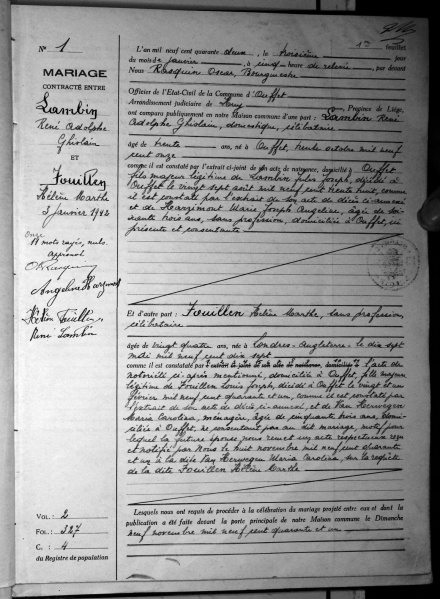 1er feuillet
N° 1
MARIAGE
CONTRACTÉ ENTRE
Lambin
René Adolphe
Ghislain
ET
Fouillen
Hélène Marthe
3 janvier 1942
Onze
mots rayés, nuls.
Approuvé
Angelina Harzimont
Hélène Fouillen
René Lambin
VOL: 2
FOL: 327
C. 4
du Registre de population
L'an mil neuf cent quarante deux, le troisième jour
du mois de janvier, à cinq heure de relevée, par devant
Nous Rasquin Oscar, Bourgmestre
Officier de l'Etat-Civil de la Commune d'Ouffet
Arrondissement judiciaire de Huy, Province de Liége,
ont comparu publiquement en notre Maison commune d'une part: Lambin René
Adolphe Ghislain, domestique, célibataire
âgé de trente ans, né à Ouffet, trente octobre mil neuf
cent onze
comme il est constaté par l'extrait ci-joint de son acte de naissance, domicilié à Ouffet
fils majeur légitime de Lambin Jules Joseph, décédé à
Ouffet le vingt sept août mil neuf cent trente huit, comme
il est constaté par l'extrait de son acte de décès ci-annexé
et de Harzimont Marie Joseph Angeline, âgée de soi-
xante trois ans, sans profession, domiciliée à Ouffet, ici
présente et consentante
Et d'autre part: Fouillen Hélène Marthe, sans profession,
célibataire
âgée de vingt quatre ans, née à Londres-Angleterre, le dix sept
mai mil neuf cent dix sept
comme il est constaté par l'acte de
notoriété ci-après mentionné, domiciliée à Ouffet, fille majeure
légitime de Fouillen Louis Joseph, décédé à Ouffet le vingt et un
février mil neuf cent quarante et un, comme il est constaté par
l'extrait de son acte de décès ci-annexé, et de Van Herwegen
Maria Carolina, ménagère, âgée de cinquante trois ans, domi-
ciliée à Ouffet, ne consentant pas au dit mariage, motif pour
lequel la future épouse nous remet un acte respectueux reçu
et notifié par Nous le huit novembre mil neuf cent quarante
et un à la dite Van Herwegen Maria Carolina, sur la requête
de la dite Fouillen Hélène Marthe
Lesquels nous ont requis de procéder à la célébration du mariage projeté entre eux et dont la
publication a été faite devant la porte principale de notre Maison commune le Dimanche
neuf novembre mil neuf cent quarante et un